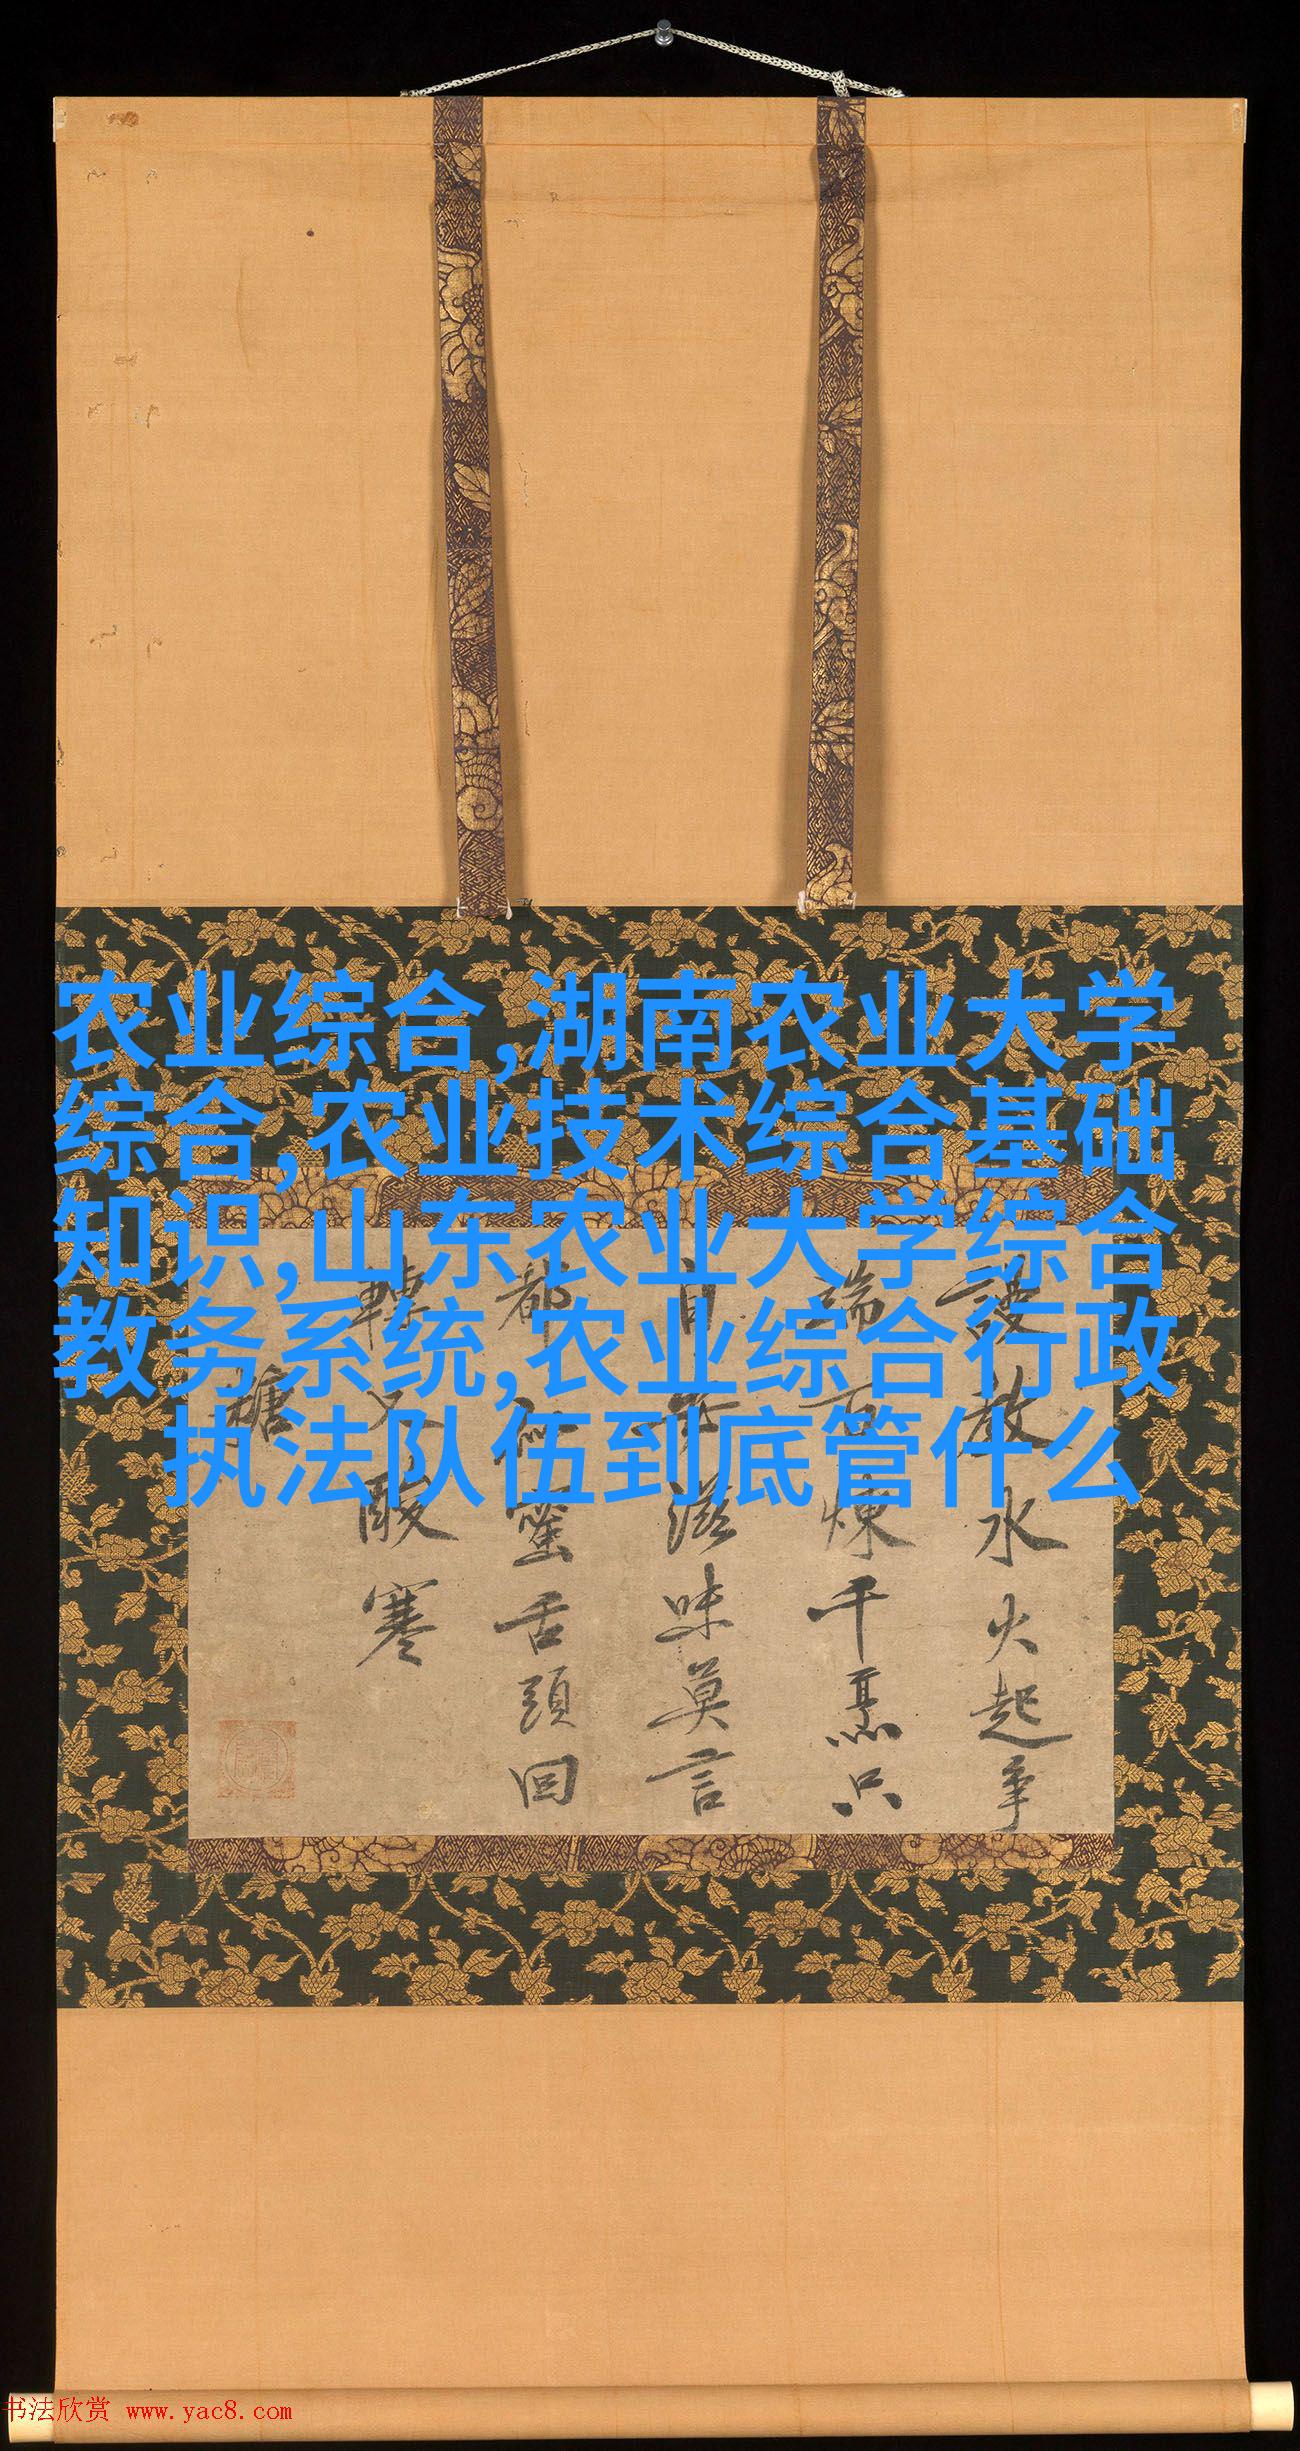 农业综合,湖南农业大学
综合,农业技术综合基础
知识,山东农业大学综合
教务系统,农业综合行政
执法队伍到底管什么
謾教水火起争
端百煉千烹只
自滋味莫言
都蜜舌頭回
轉又酸寒
糖
书法欣赏 www.yac8.com